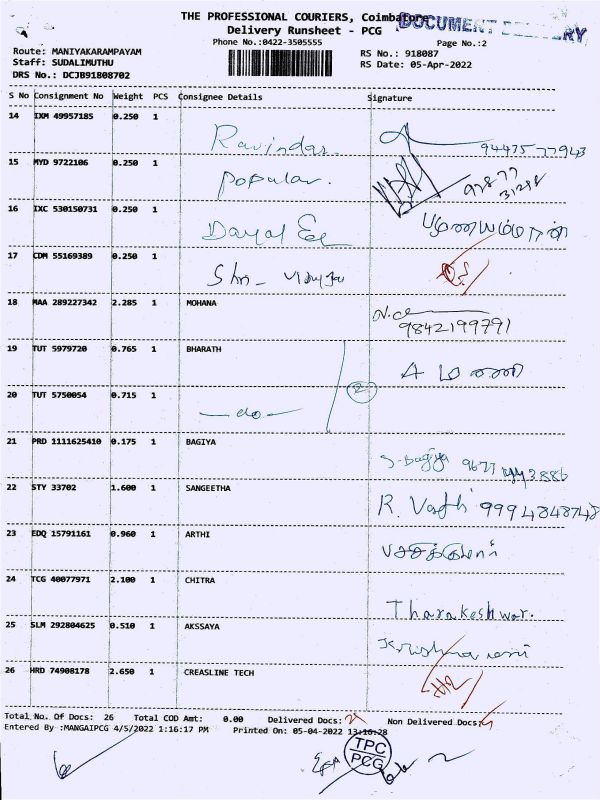 THE PROFESSIONAL COURIERS, Coimbatore
DOCUMENT DELIVERY
Delivery Runsheet - PCG
Phone No.:0422-3505555
Page No.:2
Route: MANIYAKARAMPAYAM
RS No.: 918087
Staff: SUDALIMUTHU
RS Date: 05-Apr-2022
DRS No.: DCJB91808702
S No Consignment No Weight PCS Consignee Details Signature
14 IXM 49957185 0.250 1 Ravindar 9447577943
15 MYD 9722106 0.250 1 Popular.
16 IXC 530150731 0.250 1 Dayal
17 CDM 55169389 0.250 1 Shri-
18 MAA 289227342 2.285 1 MOHANA
9842199791
19 TUT 5979720 0.765 1 BHARATH
20 TUT 5750054 0.715 1 -do- 2
21 PRD 1111625410 0.175 1 BAGIYA S-Bagiya
22 STY 33702 1.600 1 SANGEETHA R. 9994848748
23 EDQ 15791161 0.960 1 ARTHI
24 TCG 40077971 2.100 1 CHITRA Tharakeshwar.
25 SLM 292804625 0.510 1 AKSSAYA Krishnaveni
26 HRD 74908178 2.650 1 CREASLINE TECH
Total No. Of Docs: 26 Total COD Amt: 0.00 Delivered Docs: Non Delivered Docs:
Entered By :MANGAIPCG 4/5/2022 1:16:17 PM Printed On: 05-04-2022 13:16:28
TPC
PCG